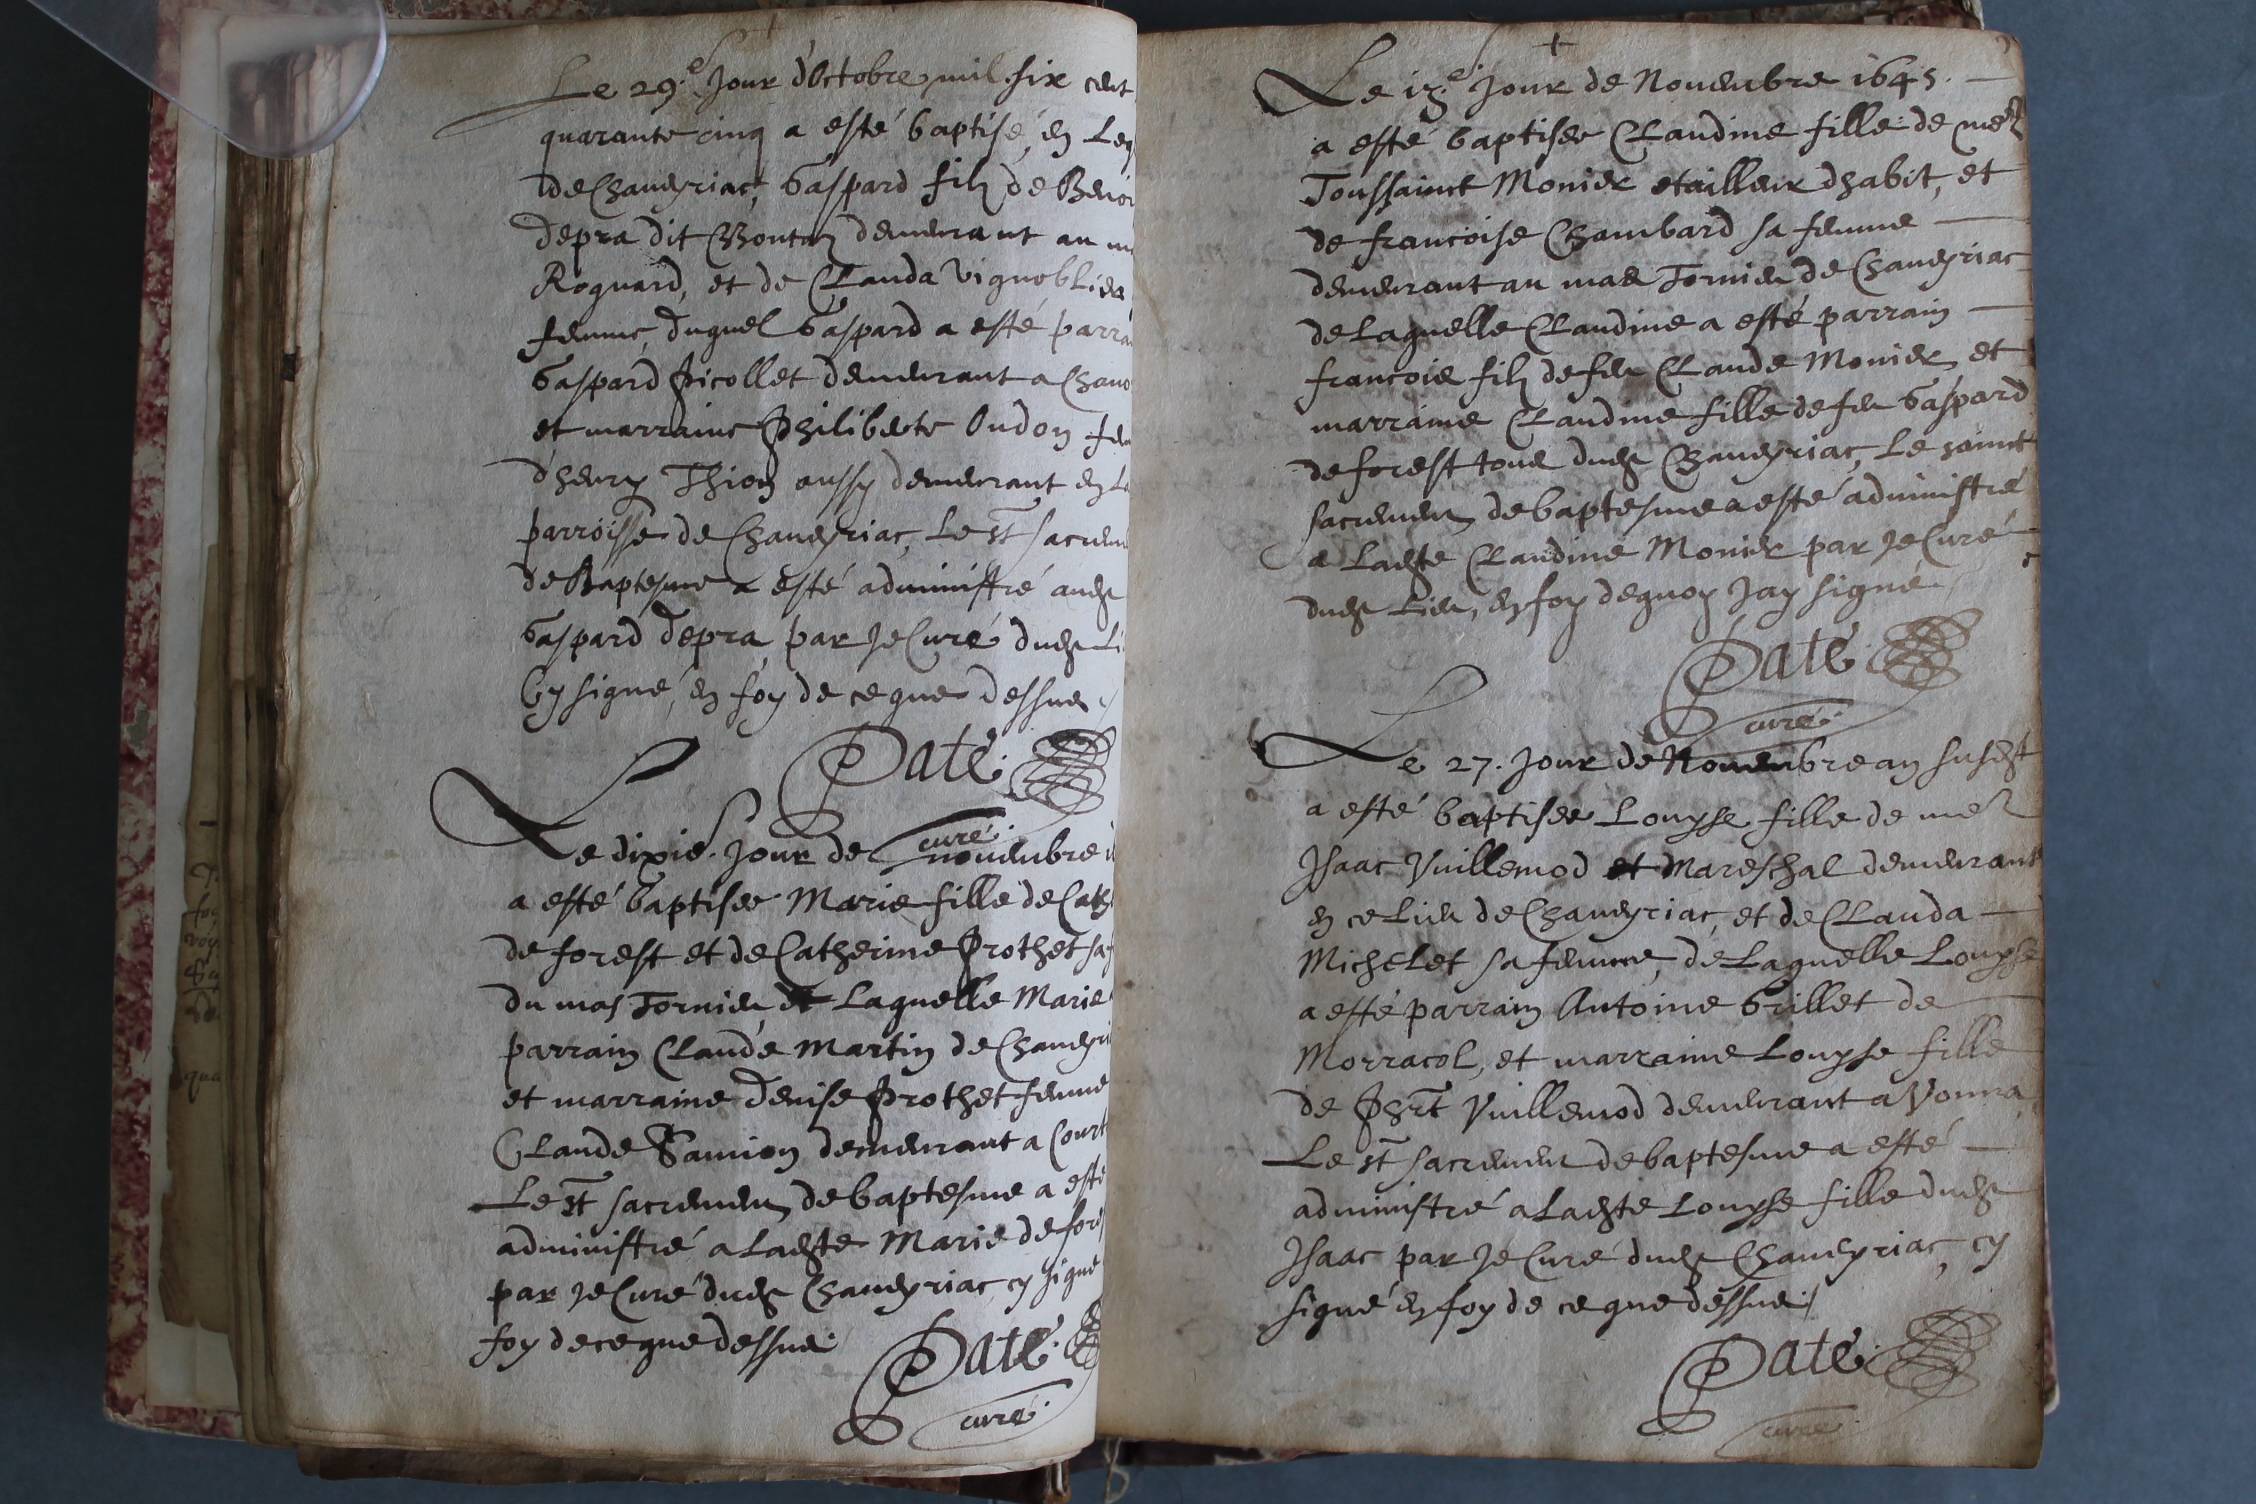 Le 29.e Jour d'Octobre mil six cent
quarante cinq a esté baptisé, en Leg
de Chaveyriac, Gaspard filz de Benoi
depra dit Bontaz demeurant au m
Roquard, et de Clauda Vignoblier
femme, duquel Gaspard a esté parra
Gaspard Picollet demeurant a Chave
et marraine Philiberte Oudon fem
d'henry Thion aussy demeurant en la
parroisse de Chaveyriac, Le st sacreme
de Baptesme a esté administré audt
Gaspard depra par Je Curé dudt Li
Cy signé, en foy de ce que dessus /
Paté
curé
Le dixie. Jour de novembre
a esté baptisee Marie fille de Cath
de forest et de Catherine Prothet sa f
du mas Tornier de Laquelle Marie
parrain Claude Martin de Chaveyri
et marraine denise Prothet femme
Claude Samion demeurant a Court
Le st sacremen de baptesme a esté
administré a Ladte Marie de fores
par Je Curé dudt Chaveyriac cy signé
foy de ce que dessus
Paté
curé
Le 13.e Jour de Novembre 1645.
a esté baptisee Claudine fille de me
Toussainct Monier etailleur dhabit, et
de francoise Chambard sa femme
demeurant au mas Tornier de Chaveyriac
de Laquelle Claudine a esté parrain
francois filz de feu Claude Monier et
marraine Claudine fille de feu Gaspard
de forest tous dudt Chaveyriac, Le sainct
sacremen de baptesme a esté administré
a Ladte Claudine Monier par Je Curé
dudt Lieu, en foy dequoy Jay signé
Paté
curé
Le 27. Jour de Novembre an susdt
a esté baptisee Louyse fille de me
Isaac Vuillemod et Mareschal demeurant
en ce Lieu de Chaveyriac, et de Clauda
Michelet sa femme, de Laquelle Louyse
a esté parrain Antoine Grillet de
Morracol, et marraine Louyse fille
de Phrt Vuillemod demeurant a Vonna
Le st sacremen de baptesme a esté
administré a Ladte Louyse fille dudt
Isaac par Je Curé dudt Chaveyriac, cy
signé en foy de ce que dessus /
Paté
curé